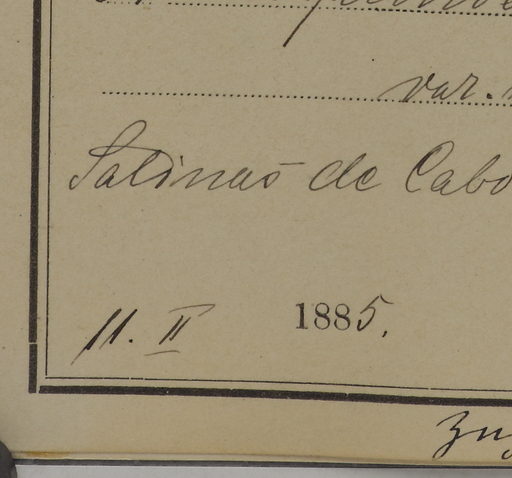 var.
Salinas de Cabo
11. II 1885.